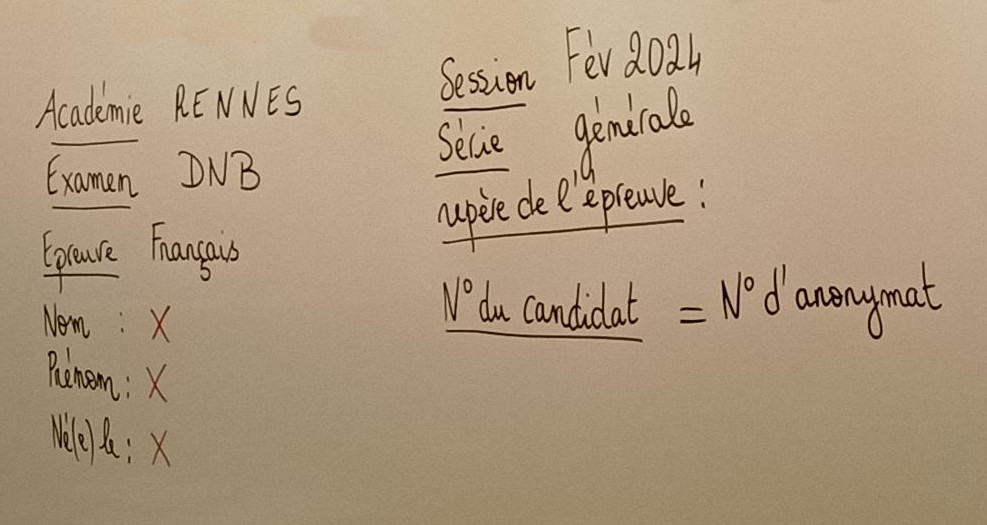 Académie RENNES
Examen DNB
Epreuve Français
Nom : X
Prénom : X
Né(e) le : X
Session Fév 2024
Série générale
repère de l'épreuve :
N° du candidat = N° d'anonymat